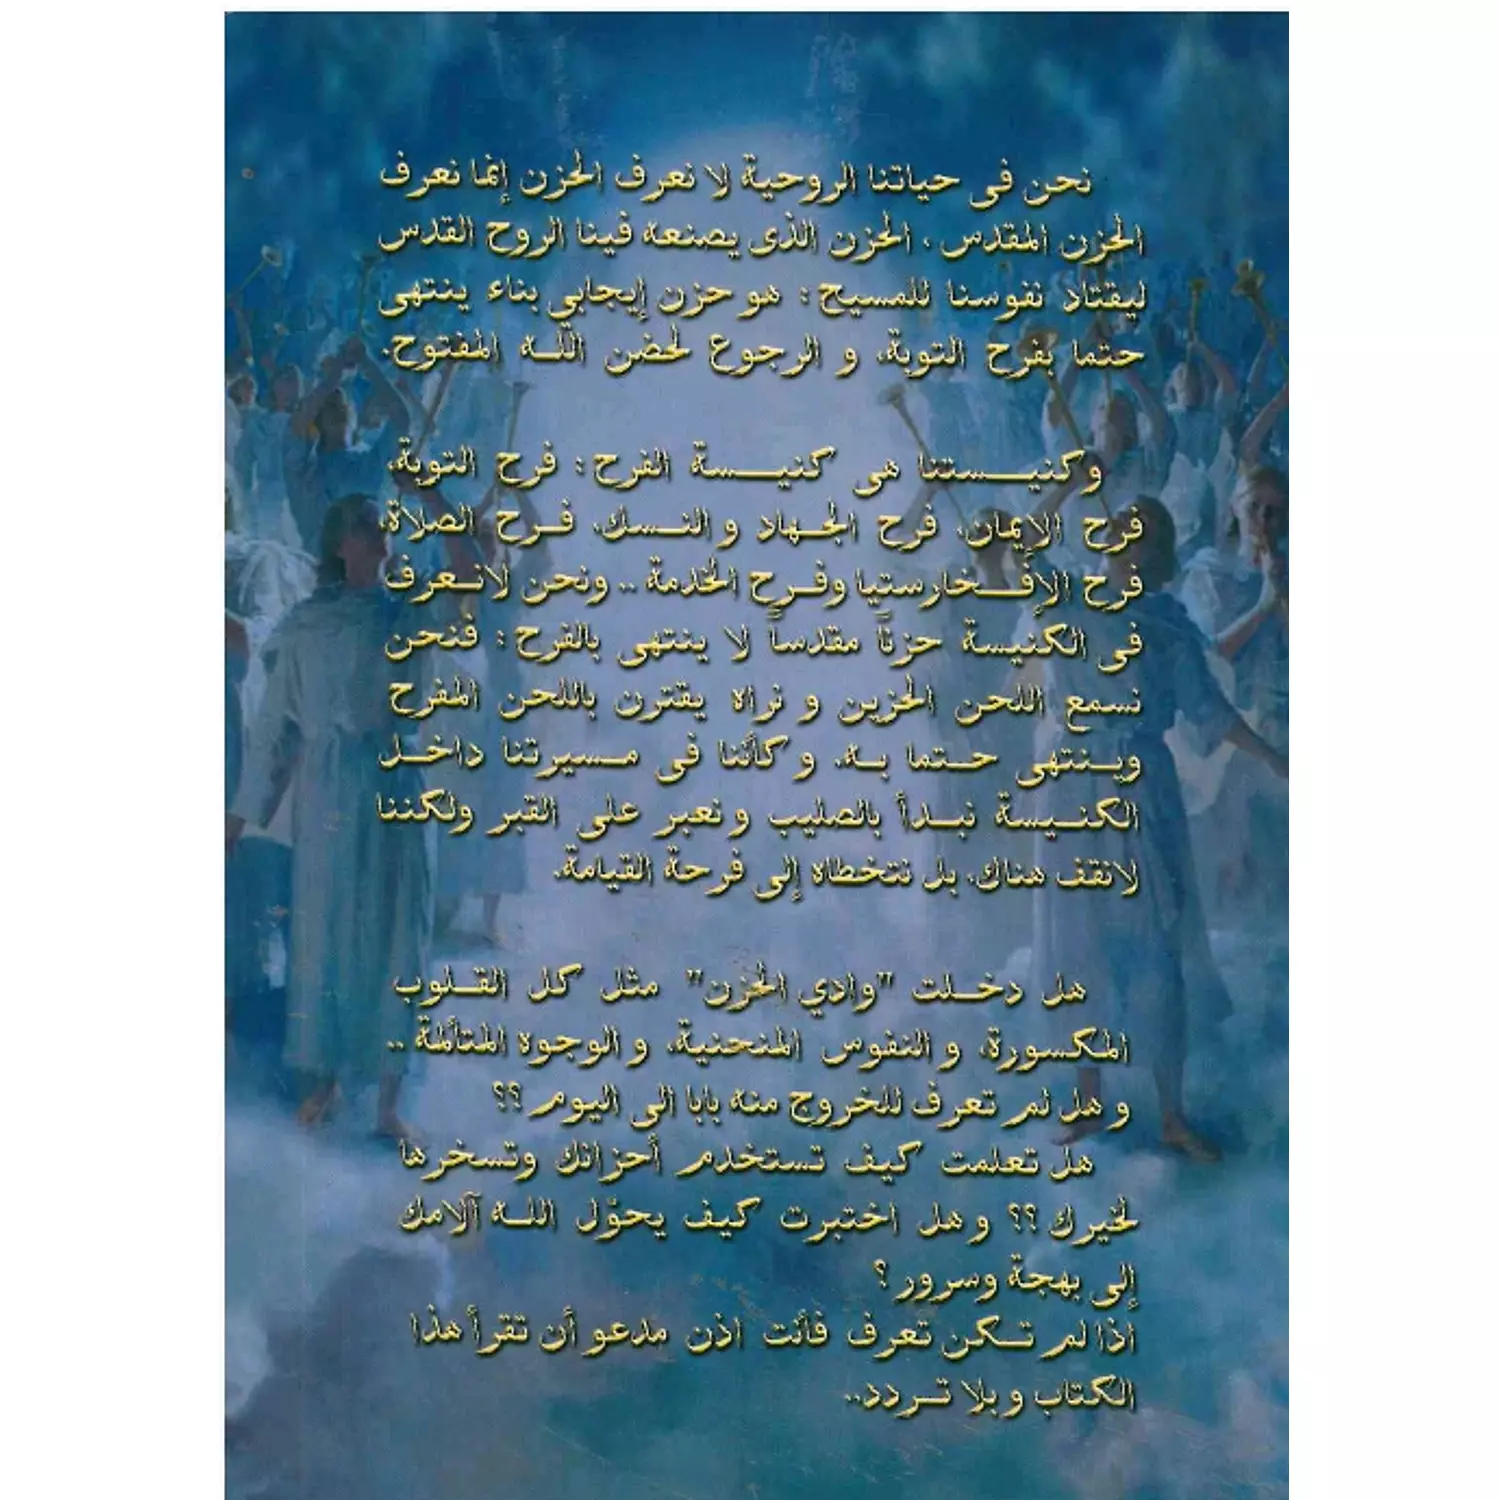 نحن فى حياتنا الروحية لا نعرف الحزن إنما نعرف
الحزن المقدس ، الحزن الذى يصنعه فينا الروح القدس
ليقتاد نفوسنا للمسيح : هو حزن إيجابي بناء ينتهى
حتما بفرح التوبة، و الرجوع لحضن اللـه المفتوح.
وكنيستنا هى كنيسة الفرح : فرح التوبة،
فرح الإيمان، فرح الجهاد والنسك، فرح الصلاة،
فرح الإفخارستيا وفرح الخدمة .. ونحن لانعرف
فى الكنيسة حزناً مقدساً لا ينتهى بالفرح : فنحن
نسمع اللحن الحزين و نراه يقترن باللحن المفرح
وينتهى حتما به، وكأننا فى مسيرتنا داخل
الكنيسة نبدأ بالصليب ونعبر على القبر ولكننا
لانقف هناك، بل نتخطاه إلى فرحة القيامة.
هل دخلت "وادي الحزن" مثل كل القلوب
المكسورة، والنفوس المنحنية، والوجوه المتألمة ..
وهل لم تعرف للخروج منه بابا الى اليوم ؟؟
هل تعلمت كيف تستخدم أحزانك وتسخرها
لخيرك ؟؟ وهل اختبرت كيف يحوّل اللـه آلامك
إلى بهجة وسرور ؟
اذا لم تكن تعرف فأنت اذن مدعو أن تقرأ هذا
الكتاب وبلا تردد..